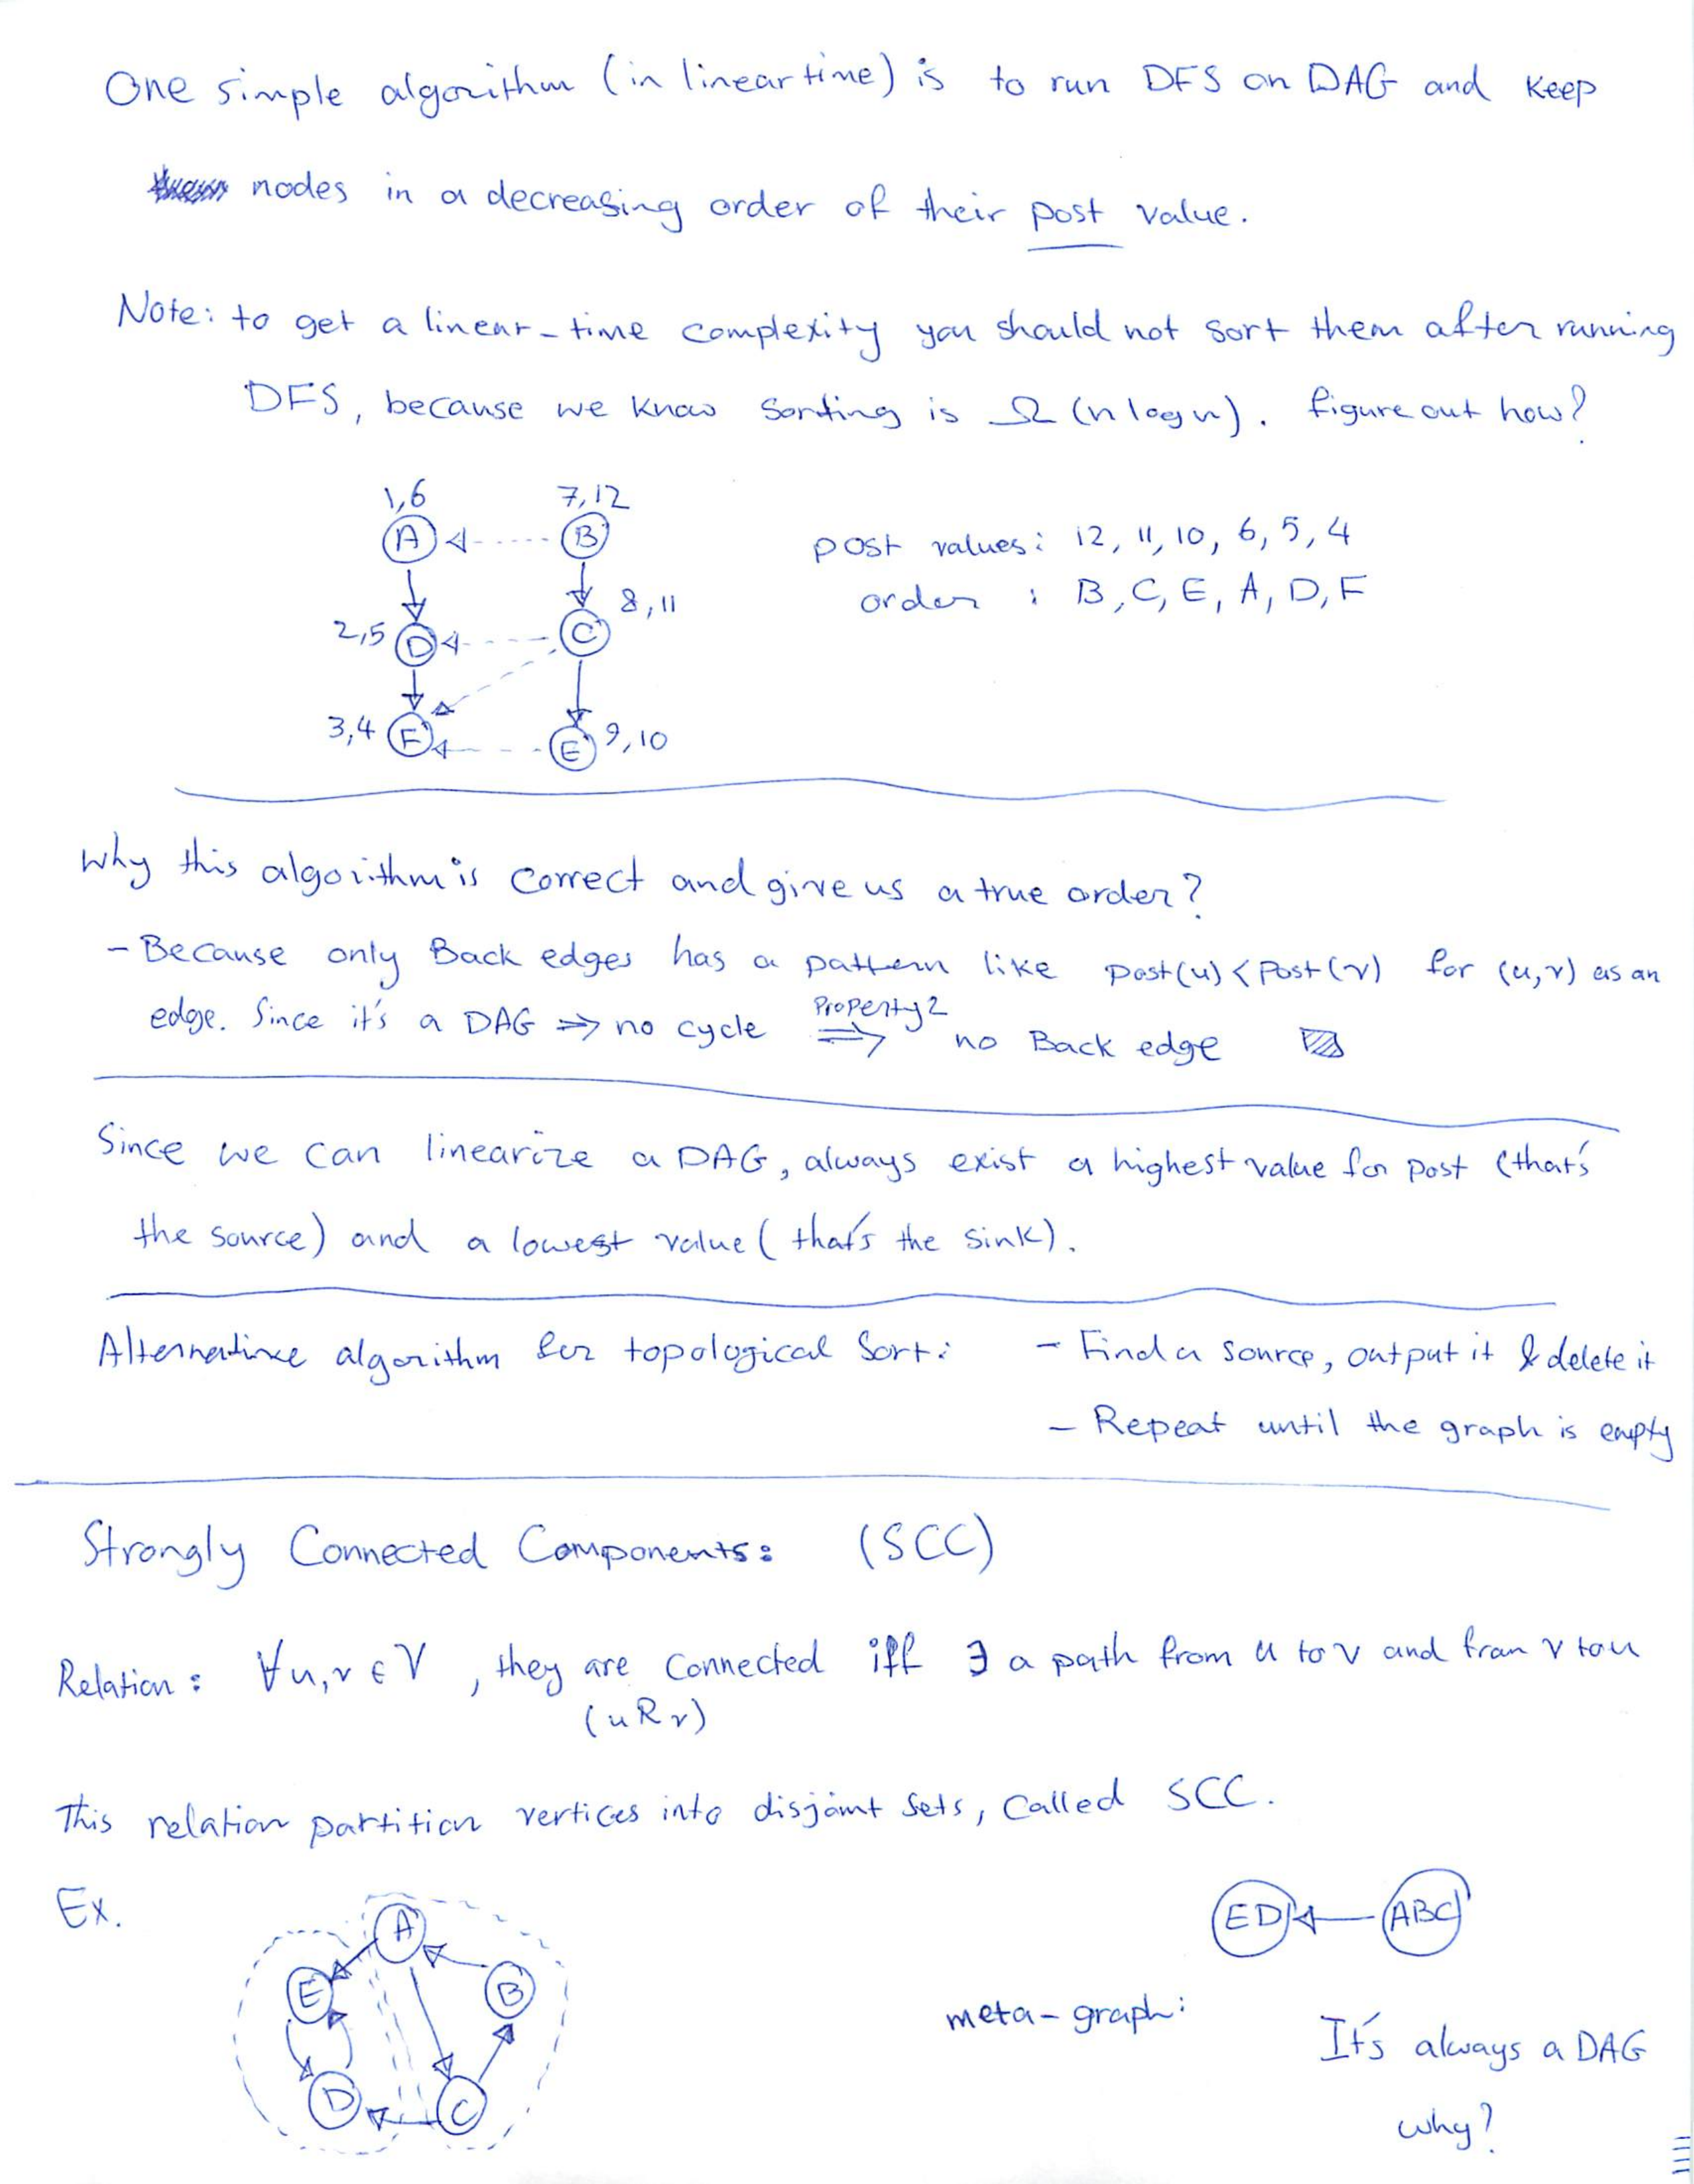 One simple algorithm (in linear time) is to run DFS on DAG and keep
nodes in a decreasing order of their post value.
Note: to get a linear-time complexity you should not sort them after running
DFS, because we know sorting is Ω(n log n). figure out how?
1,6 7,12
A B
post values: 12, 11, 10, 6, 5, 4
order : B, C, E, A, D, F
8,11
2,5 D C
3,4 F E 9,10
Why this algorithm is correct and give us a true order?
- Because only Back edges has a pattern like post(u) < post(v) for (u,v) as an
edge. Since it's a DAG ⇒ no cycle Property 2 ⇒ no Back edge
Since we can linearize a DAG, always exist a highest value for post (that's
the source) and a lowest value (that's the sink).
Alternative algorithm for topological Sort: - Find a source, output it & delete it
- Repeat until the graph is empty
Strongly Connected Components: (SCC)
Relation: ∀u,v ∈ V, they are connected iff ∃ a path from u to v and from v to u
(uRv)
This relation partition vertices into disjoint sets, called SCC.
Ex.
A
E
B
D
C
ED ABC
meta-graph:
It's always a DAG
why?